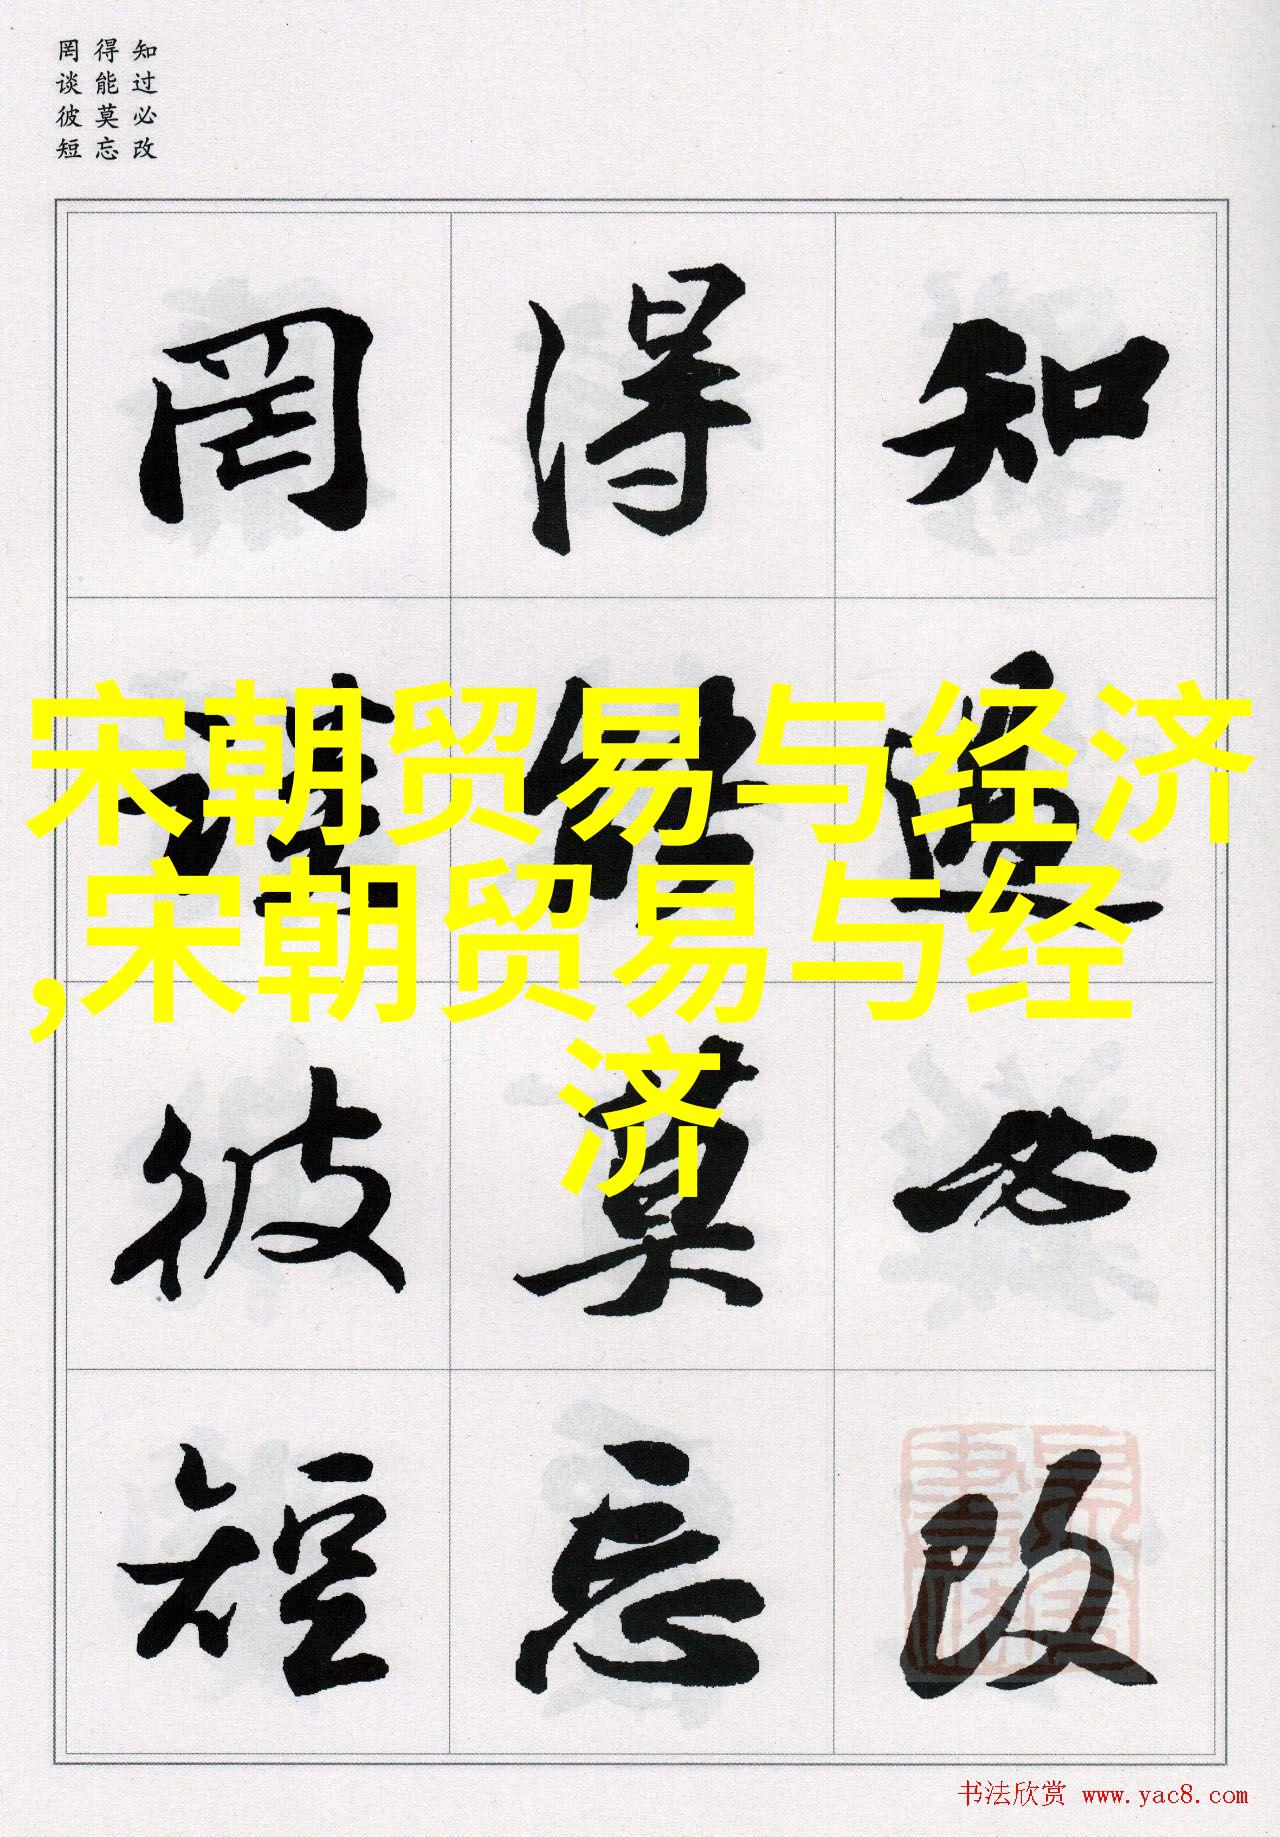 知过必改
得能莫忘
罔谈彼短
知過必改
得能莫忘
罔談彼短
宋朝贸易与经济
,宋朝贸易与经
济
书法欣赏 www.yac8.com